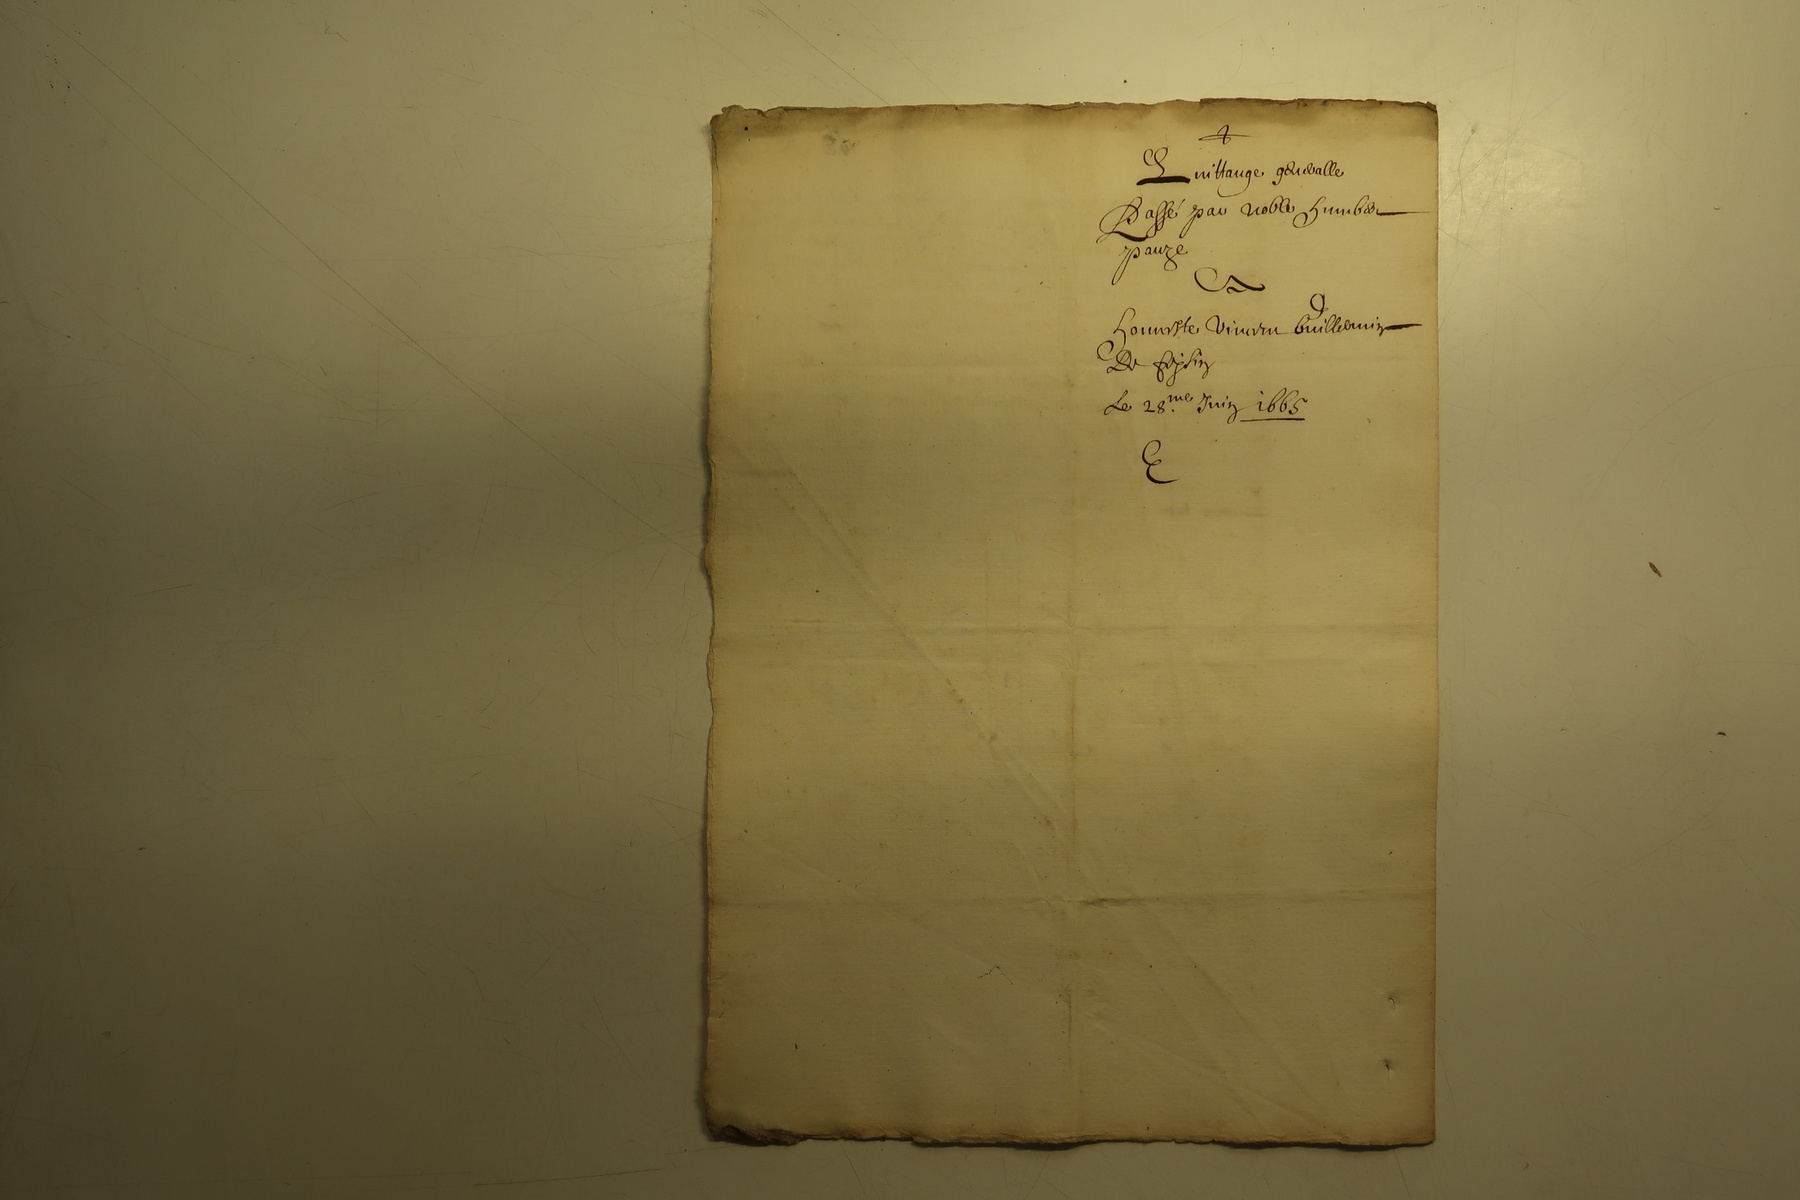 Quittange generalle
Passé par noble Humber
panze
A
Honneste Vincent Guillermin
De
Le 28.me Juin 1665